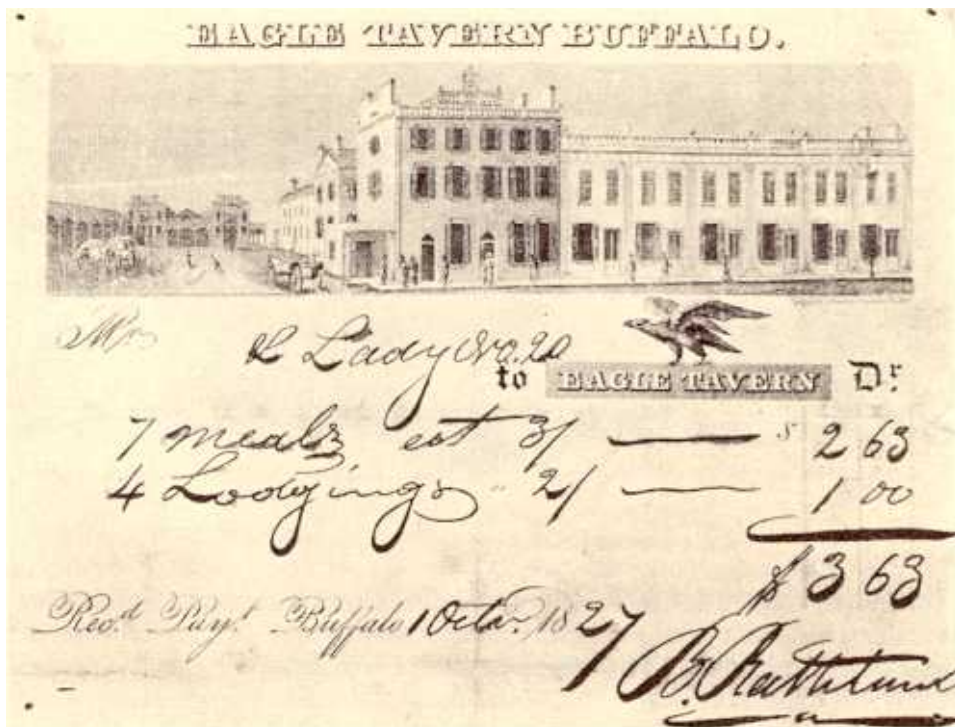 EAGLE TAVERN BUFFALO.
Mr
& Lady No. 20
to EAGLE TAVERN Dr.
7 meals at 3/ — $ 2 63
4 Lodgings " 2/ — 1 00
$ 3 63
Recd. Payt. Buffalo 1 Octr. 1827
B. Rathbun